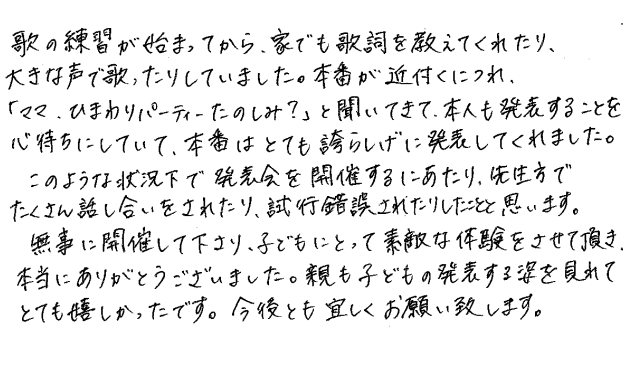 歌の練習が始まってから、家でも歌詞を教えてくれたり、
大きな声で歌ったりしていました。本番が近付くにつれ、
「ママ、ひまわりパーティーたのしみ？」と聞いてきて、本人も発表することを
心待ちにしていて、本番はとても誇らしげに発表してくれました。
このような状況下で発表会を開催するにあたり、先生方で
たくさん話し合いをされたり、試行錯誤されたりしたことと思います。
無事に開催して下さり、子どもにとって素敵な体験をさせて頂き、
本当にありがとうございました。親も子どもの発表する姿を見れて
とても嬉しかったです。今後とも宜しくお願い致します。